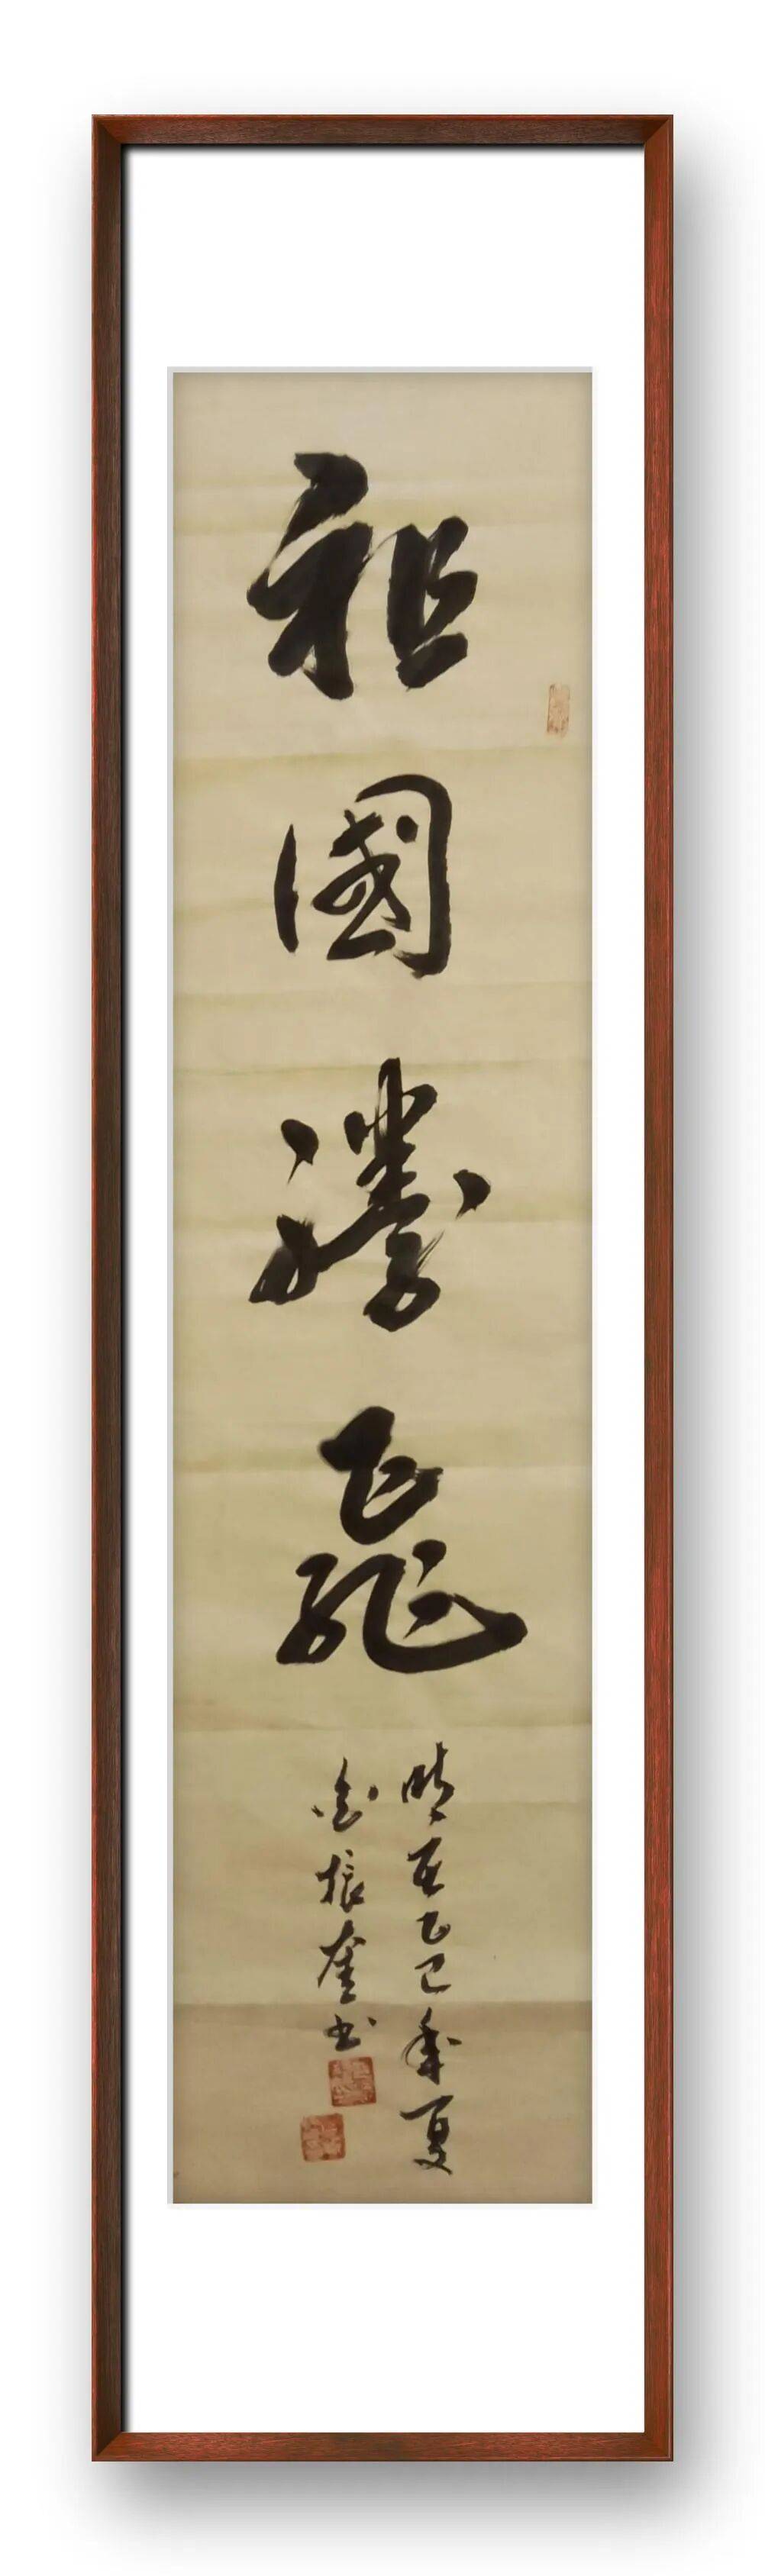 祖國騰飛
時在乙巳年夏
金振奎书